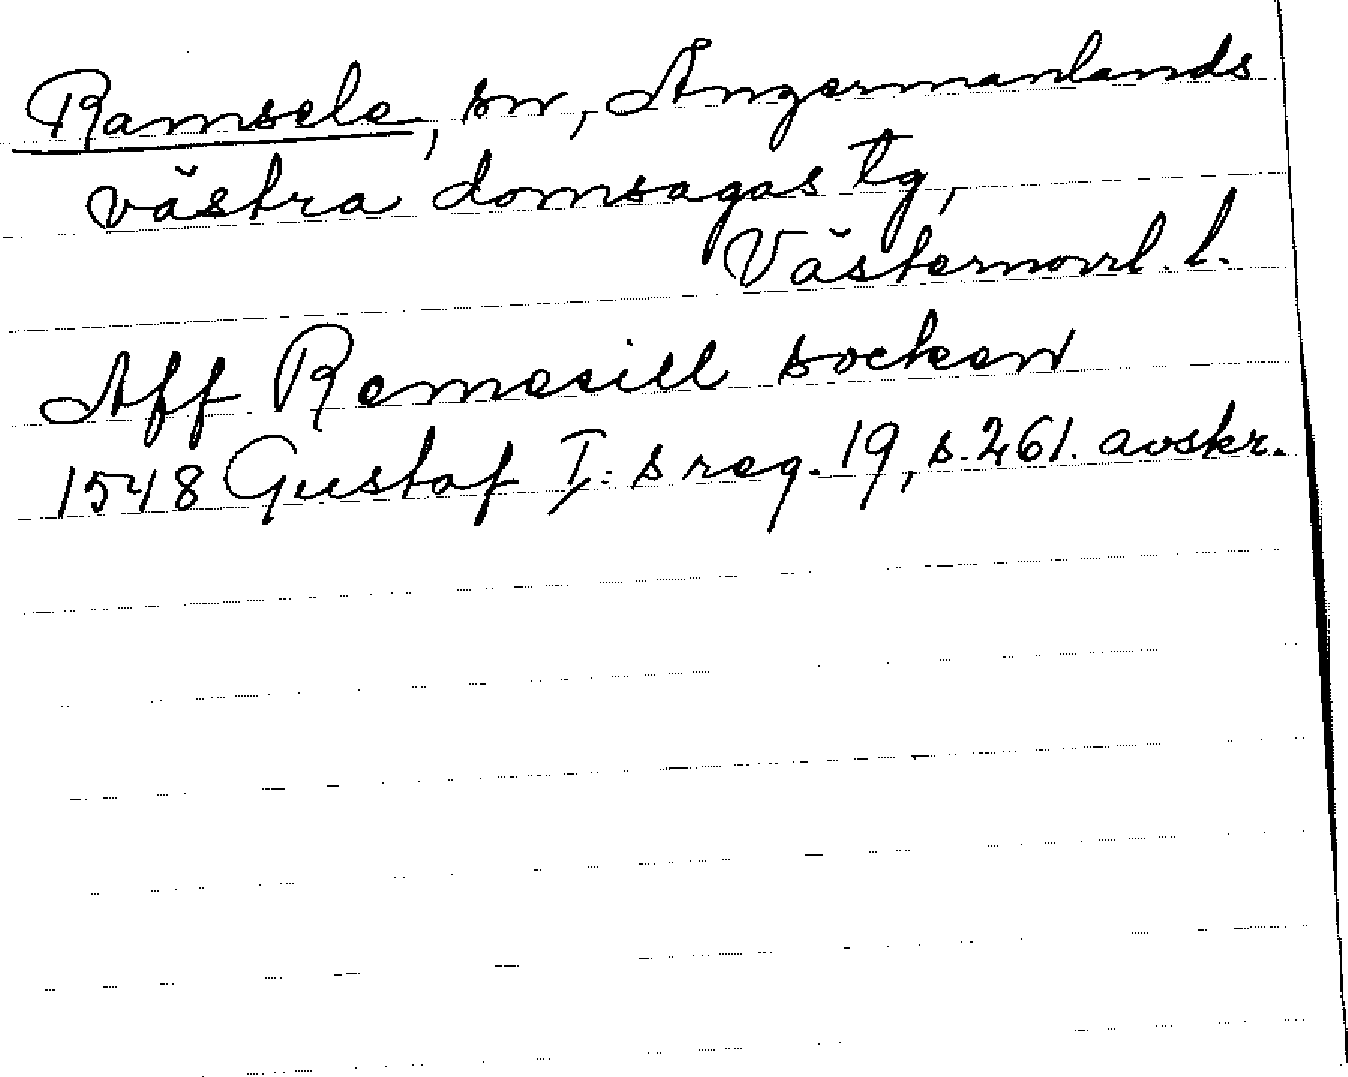 Ramsele, sn, Ångermanlands
västra domsagas tg,
Västernorrl. l.
Aff Remesill socken
1548 Gustaf I:s reg. 19, s. 261. avskr.